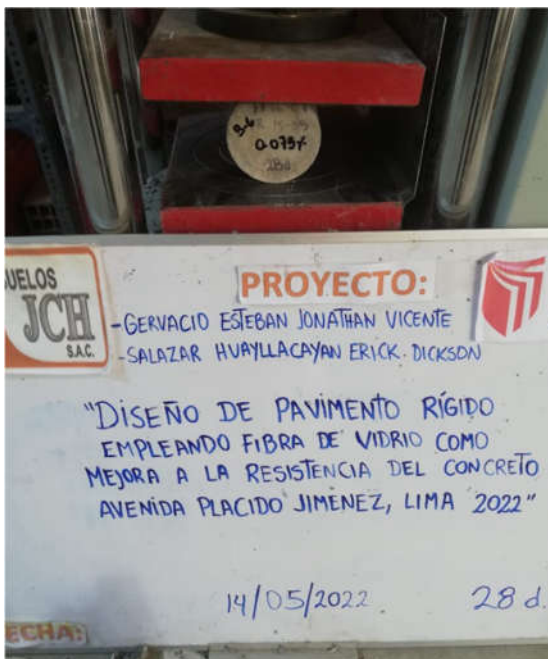 0.075%
28d
UELOS
JCH
S.A.C.
PROYECTO:
-GERVACIO ESTEBAN JONATHAN VICENTE
-SALAZAR HUAYLLACAYAN ERICK. DICKSON
"DISEÑO DE PAVIMENTO RÍGIDO
EMPLEANDO FIBRA DE VIDRIO COMO
MEJORA A LA RESISTENCIA DEL CONCRETO
AVENIDA PLACIDO JIMENEZ, LIMA 2022"
14/05/2022 28 d.
ECHA: